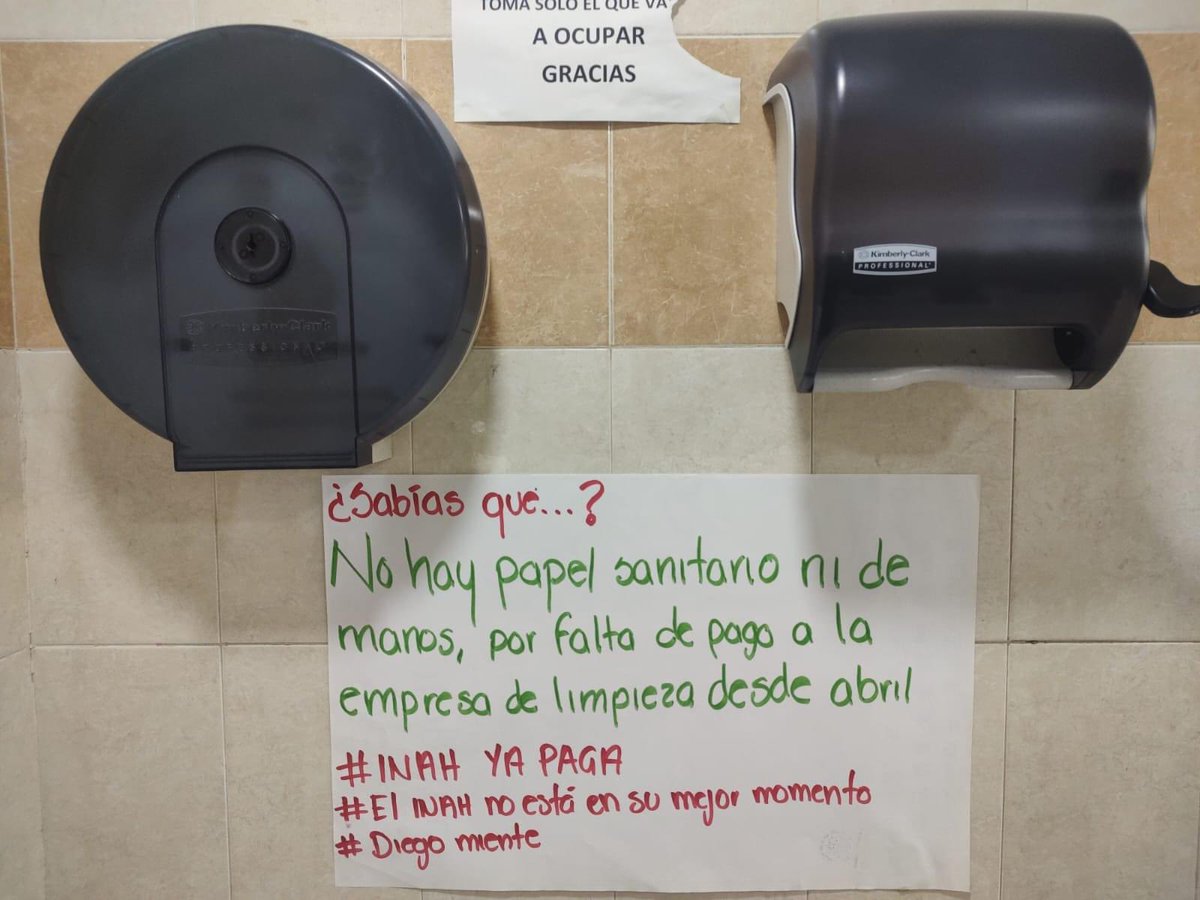 TOMA SOLO EL QUE VA
A OCUPAR
GRACIAS
Kimberly-Clark
PROFESSIONAL
Kimberly-Clark
PROFESSIONAL
¿Sabías que...?
No hay papel sanitario ni de
manos, por falta de pago a la
empresa de limpieza desde abril
#INAH YA PAGA
#El INAH no está en su mejor momento
# Diego miente